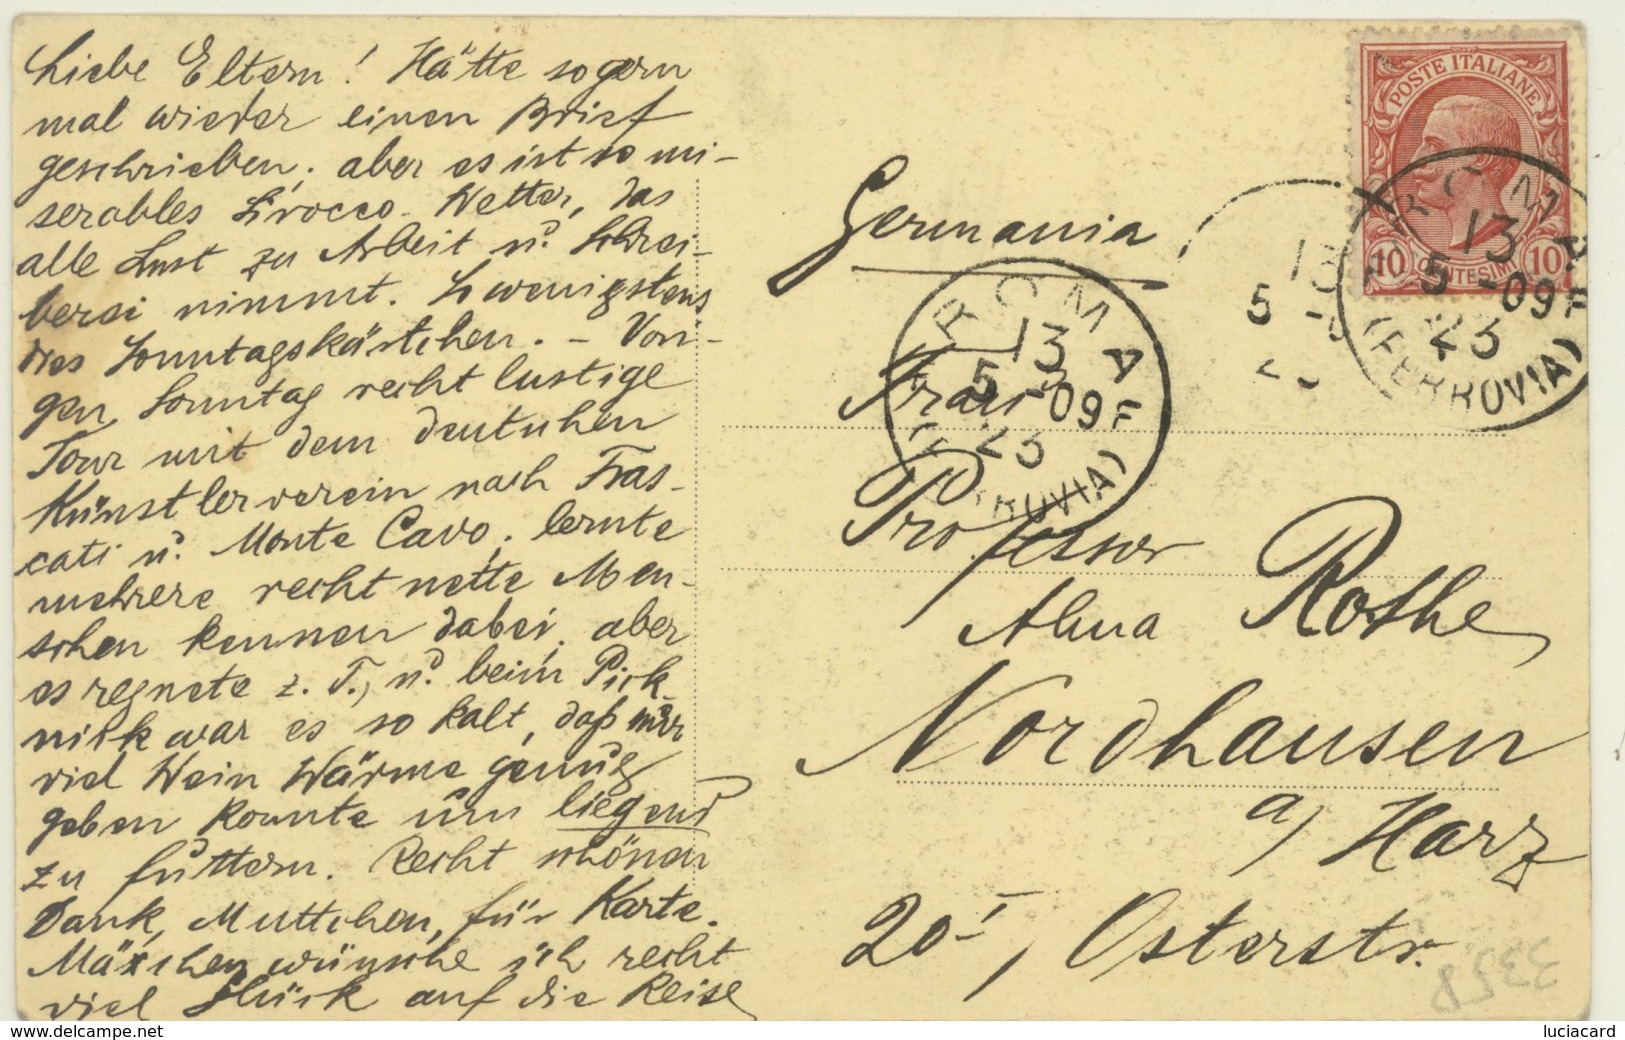 Liebe Eltern! Hätte so gern
mal wieder einen Brief
geschrieben, aber es ist so mi-
serables Sirocco-Wetter, das
alle Lust zu Arbeit u. Schrei-
berei nimmt. So wenigstens
dies Sonntagskärtchen. – Vori-
gen Sonntag recht lustige
Tour mit dem deutschen
Künstlerverein nach Fras-
cati u. Monte Cavo, lernte
mehrere recht nette Men-
schen kennen dabei, aber
es regnete z. T., u. beim Pick-
nick war es so kalt, daß nur
viel Wein Wärme genug
geben konnte um liegend
zu futtern. Recht schönen
Dank, Muttchen, für Karte.
Mäxchen wünsche ich recht
viel Glück auf die Reise
POSTE ITALIANE
10 CENTESIMI 10
ROMA
13
5 - 09 F
23
(FERROVIA)
Germania
ROMA
13
5 - 09 F
23
(FERROVIA)
13
5
Frau
Professor
Alma Rothe
Nordhausen
a/Harz
20 I, Osterstr.
3358
luciacard